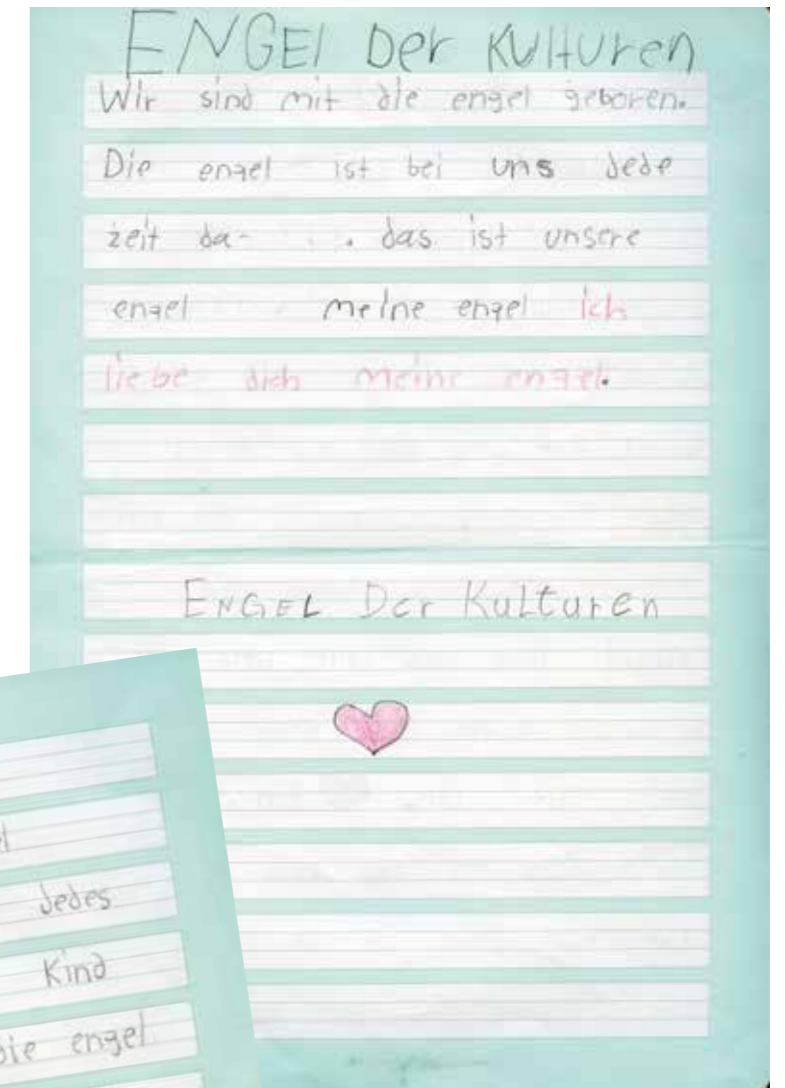 ENGEl Der Kulturen
Wir sind mit die engel geboren.
Die engel ist bei uns Jede
zeit da- . das ist unsere
engel meine engel ich
liebe dich meine engel.
ENGEL Der Kulturen
Jedes
Kind
die engel